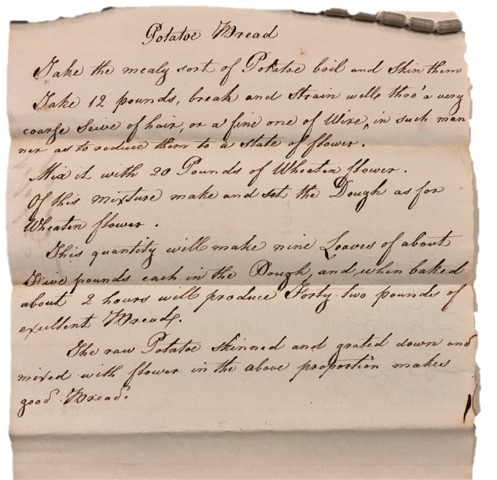 Potatoe Bread
Take the mealy sort of Potatoe boil and Skin them
Take 12 pounds, break and Strain well, thro' a very
coarse Seive of hair, or a fine one of Wire, in such man
ner as to reduce them to a state of flower.
Mix it with 20 Pounds of Wheaten flower.
Of this mixture make and set the Dough as for
Wheaten flower.
This quantity will make nine Loaves of about
Five pounds each in the Dough, and when baked
about 2 hours will produce Forty two pounds of
exellent Bread.
The raw Potatoe Skinned and grated down and
mixed with flower in the above proportion makes
good Bread.